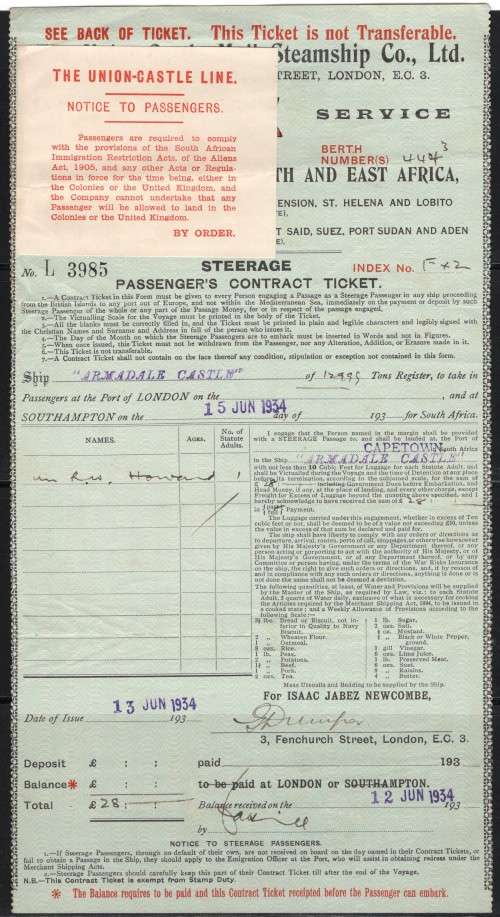 SEE BACK OF TICKET. This Ticket is not Transferable.
Steamship Co., Ltd.
STREET, LONDON, E.C. 3.
THE UNION-CASTLE LINE.
NOTICE TO PASSENGERS.
Passengers are required to comply
with the provisions of the South African
Immigration Restriction Acts, of the Aliens
Act, 1905, and any other Acts or Regula-
tions in force for the time being, either in
the Colonies or the United Kingdom, and
the Company cannot undertake that any
Passenger will be allowed to land in the
Colonies or the United Kingdom.
BY ORDER.
SERVICE
BERTH
NUMBER(S) 444 3
TH AND EAST AFRICA,
ENSION, ST. HELENA AND LOBITO
T SAID, SUEZ, PORT SUDAN AND ADEN
No. L 3985
STEERAGE
INDEX No.
PASSENGER'S CONTRACT TICKET.
1.—A Contract Ticket in this Form must be given to every Person engaging a Passage as a Steerage Passenger in any ship proceeding
from the British Islands to any port out of Europe, and not within the Mediterranean Sea, immediately on the payment or deposit by such
Steerage Passenger of the whole or any part of the Passage Money, for or in respect of the passage engaged.
2.—The Victualling Scale for the Voyage must be printed in the body of the Ticket.
3.—All the blanks must be correctly filled in, and the Ticket must be printed in plain and legible characters and legibly signed with
the Christian Names and Surname and Address in full of the person who issues it.
4.—The Day of the Month on which the Steerage Passengers are to embark must be inserted in Words and not in Figures.
5.—When once issued, this Ticket must not be withdrawn from the Passenger, nor any Alteration, Addition, or Erasure made in it.
6.—This Ticket is not transferable.
7.—A Contract Ticket shall not contain on the face thereof any condition, stipulation or exception not contained in this form.
Ship "ARMADALE CASTLE" of 12999 Tons Register, to take in
Passengers at the Port of LONDON on the , and at
SOUTHAMPTON on the 15 JUN 1934 day of 193 for South Africa.
NAMES. AGES. No. of Statute Adults.
Howard 1
I engage that the Person named in the margin shall be provided
with a STEERAGE Passage to, and shall be landed at, the Port of
CAPETOWN, South Africa
in the Ship "ARMADALE CASTLE"
with not less than 10 Cubic Feet for Luggage for each Statute Adult, and
shall be Victualled during the Voyage and the time of Detention at any place
before its termination, according to the subjoined scale, for the sum of
£ 28 including Government Dues before Embarkation, and
Head Money, if any, at the place of landing, and every other charge, except
Freight for Excess of Luggage beyond the quantity above specified, and I
hereby acknowledge to have received the sum of £ 28
in part/full Payment.
The Luggage carried under this engagement, whether in excess of Ten
Cubic feet or not, shall be deemed to be of a value not exceeding £10, unless
the value in excess of that sum be declared and paid for.
The ship shall have liberty to comply with any orders or directions as
to departure, arrival, routes, ports of call, stoppages or otherwise howsoever
given by His Majesty's Government or any Department thereof, or any
person acting or purporting to act with the authority of His Majesty, or of
His Majesty's Government, or of any Department thereof, or by any
Committee or person having, under the terms of the War Risks Insurance
on the ship, the right to give such orders or directions, and, if by reason of
and in compliance with any such orders or directions, anything is done or is
not done the same shall not be deemed a deviation.
The following quantities, at least, of Water and Provisions will be Supplied
by the Master of the Ship, as required by Law, viz.: to each Statute
Adult, 3 quarts of Water daily, exclusive of what is necessary for cooking
the Articles required by the Merchant Shipping Act, 1894, to be issued in
a cooked state; and a Weekly Allowance of Provisions according to the
following Scale:—
3½ lbs. Bread or Biscuit, not inferior in Quality to Navy Biscuit.
2 „ Wheaten Flour.
1 „ Oatmeal.
8 ozs. Rice.
1½ lb. Peas.
2 „ Potatoes.
1¼ „ Beef.
1 „ Pork.
1 lb. Sugar.
2 ozs. Salt.
½ oz. Mustard.
¼ „ Black or White Pepper, ground.
1 gill Vinegar.
6 ozs. Lime Juice.
1 lb. Preserved Meat.
6 ozs. Suet.
8 „ Raisins.
4 „ Butter.
Mess Utensils and Bedding to be supplied by the Ship.
For ISAAC JABEZ NEWCOMBE,
Date of Issue 13 JUN 1934 193
3, Fenchurch Street, London, E.C. 3.
Deposit £ : : paid 193
Balance* £ : : to be paid at LONDON or SOUTHAMPTON.
Total £ 28 : : Balance received on the 12 JUN 1934 193
by
NOTICE TO STEERAGE PASSENGERS.
1.—If Steerage Passengers, through no default of their own, are not received on board on the day named in their Contract Tickets, or
fail to obtain a Passage in the Ship, they should apply to the Emigration Officer at the Port, who will assist in obtaining redress under the
Merchant Shipping Acts.
2.—Steerage Passengers should carefully keep this part of their Contract Ticket till after the end of the Voyage.
N.B.—This Contract Ticket is exempt from Stamp Duty.
* The Balance requires to be paid and this Contract Ticket receipted before the Passenger can embark.